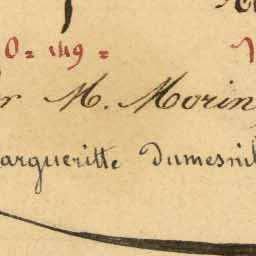 0 = 149 =
r M. Morin
argueritte Dumesnil